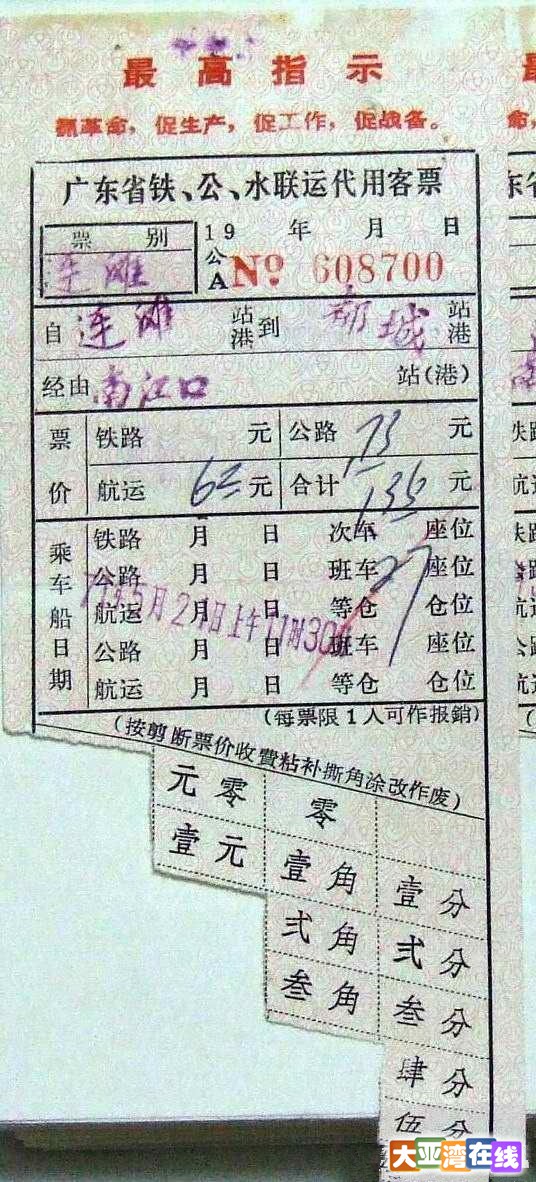 最高指示
抓革命，促生产，促工作，促战备。
命，
广东省铁、公、水联运代用客票
票别
连滩
19 年 月 日
公A No 608700
自连滩站港到郁城站港
经由南江口站(港)
票价
铁路 元 公路 73 元
航运 62 元 合计 135 元
乘车船日期
铁路 月 日 次车 座位
公路 月 日 班车 27 座位
航运 月 日 等仓 仓位
5月2 日上午11时30
公路 月 日 班车 座位
航运 月 日 等仓 仓位
(每票限1人可作报銷)
(按剪断票价收費粘补撕角涂改作废)
元零 零
壹元 壹角 壹分
弍角 弍分
叁角 叁分
肆分
伍分
大亚湾在线